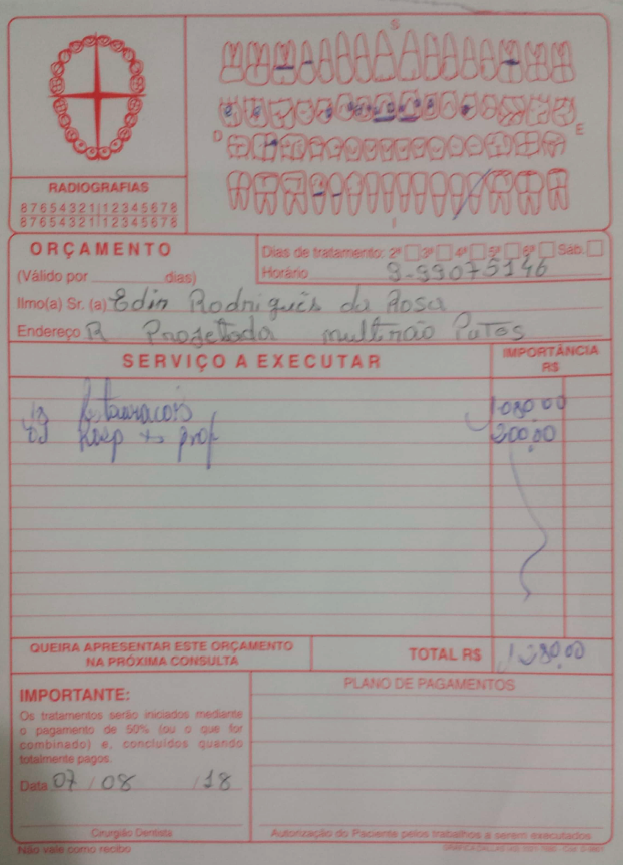 S
D
E
I
RADIOGRAFIAS
87654321|12345678
87654321|12345678
ORÇAMENTO
(Válido por dias)
Dias de tratamento: 2ª 3ª 4ª 5ª 6ª Sáb.
Horário 9-99075146
Ilmo(a) Sr. (a) Edin Rodrigues da Rosa
Endereço R Projetada multirão Patos
SERVIÇO A EXECUTAR
IMPORTÂNCIA
R$
1.080,00
Rasp + prof 200,00
QUEIRA APRESENTAR ESTE ORÇAMENTO
NA PRÓXIMA CONSULTA
TOTAL R$ 1.280,00
IMPORTANTE:
Os tratamentos serão iniciados mediante
o pagamento de 50% (ou o que for
combinado) e, concluídos quando
totalmente pagos.
Data 07 / 08 / 18
Cirurgião Dentista
PLANO DE PAGAMENTOS
Autorização do Paciente pelos trabalhos a serem executados
Não vale como recibo